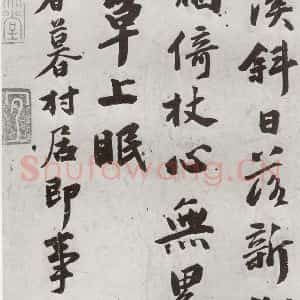 斜日落新
倚杖心無
草上眠
暮村居即事
Shufawang.CN